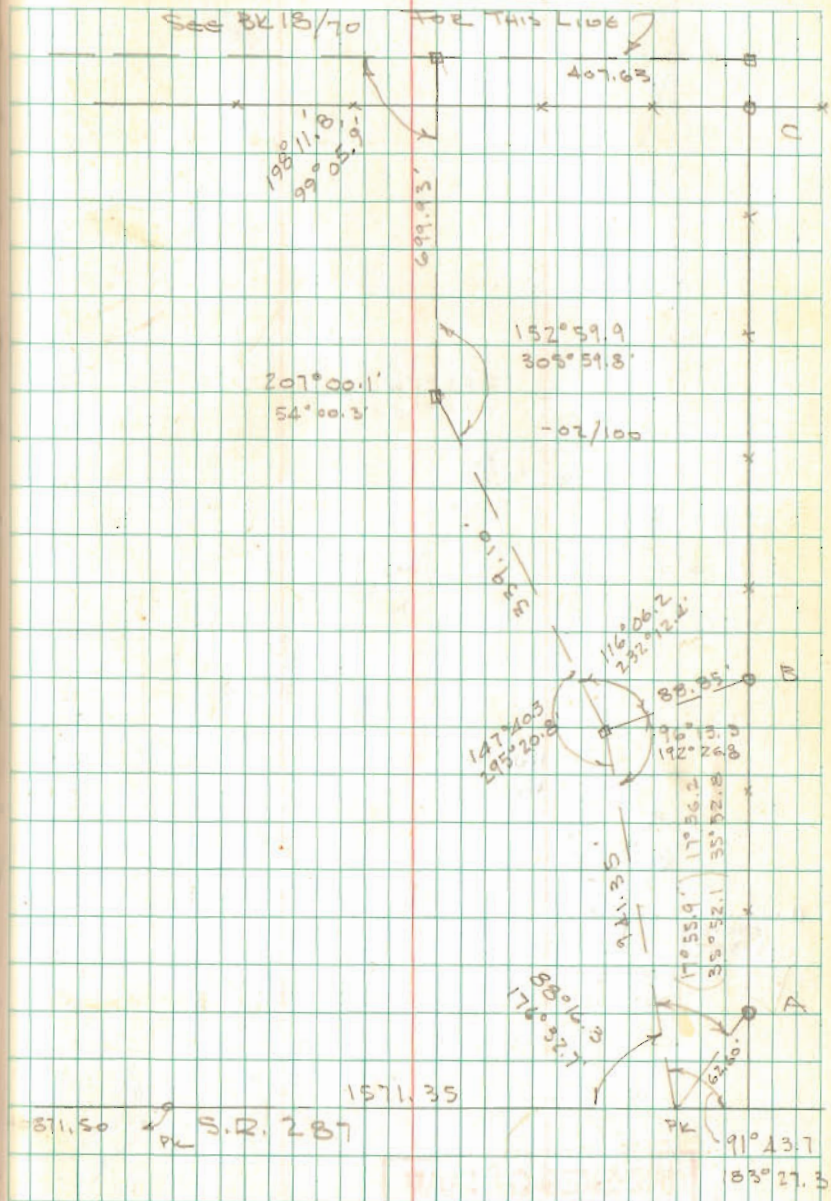 SEE BK 18/70 FOR THIS LINE
407.63
C
198°11.8'
99°05.9'
699.93'
152°59.9
305°59.8'
207°00.1'
54°00.3'
-02/100
339.10'
116°06.2
232°12.4'
88.85'
B
147°40.3
295°20.8'
96°13.3
192°26.8
17°56.2
35°52.8
(17°55.9')
(35°52.1)
941.35
A
88°16.3
176°32.7'
62.60'
1571.35
871.50
PK
S.R. 287
PK
91°43.7
183°27.3